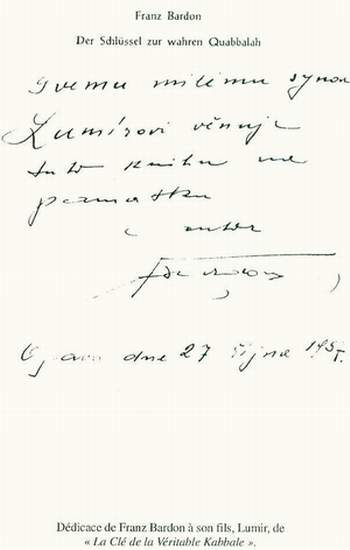 Franz Bardon
Der Schlüssel zur wahren Quabbalah
Svemu milému synovi
Lumírovi věnuje
tuto knihu na
památku
autor
Opava dne 27 října
Dédicace de Franz Bardon à son fils, Lumir, de
« La Clé de la Véritable Kabbale ».